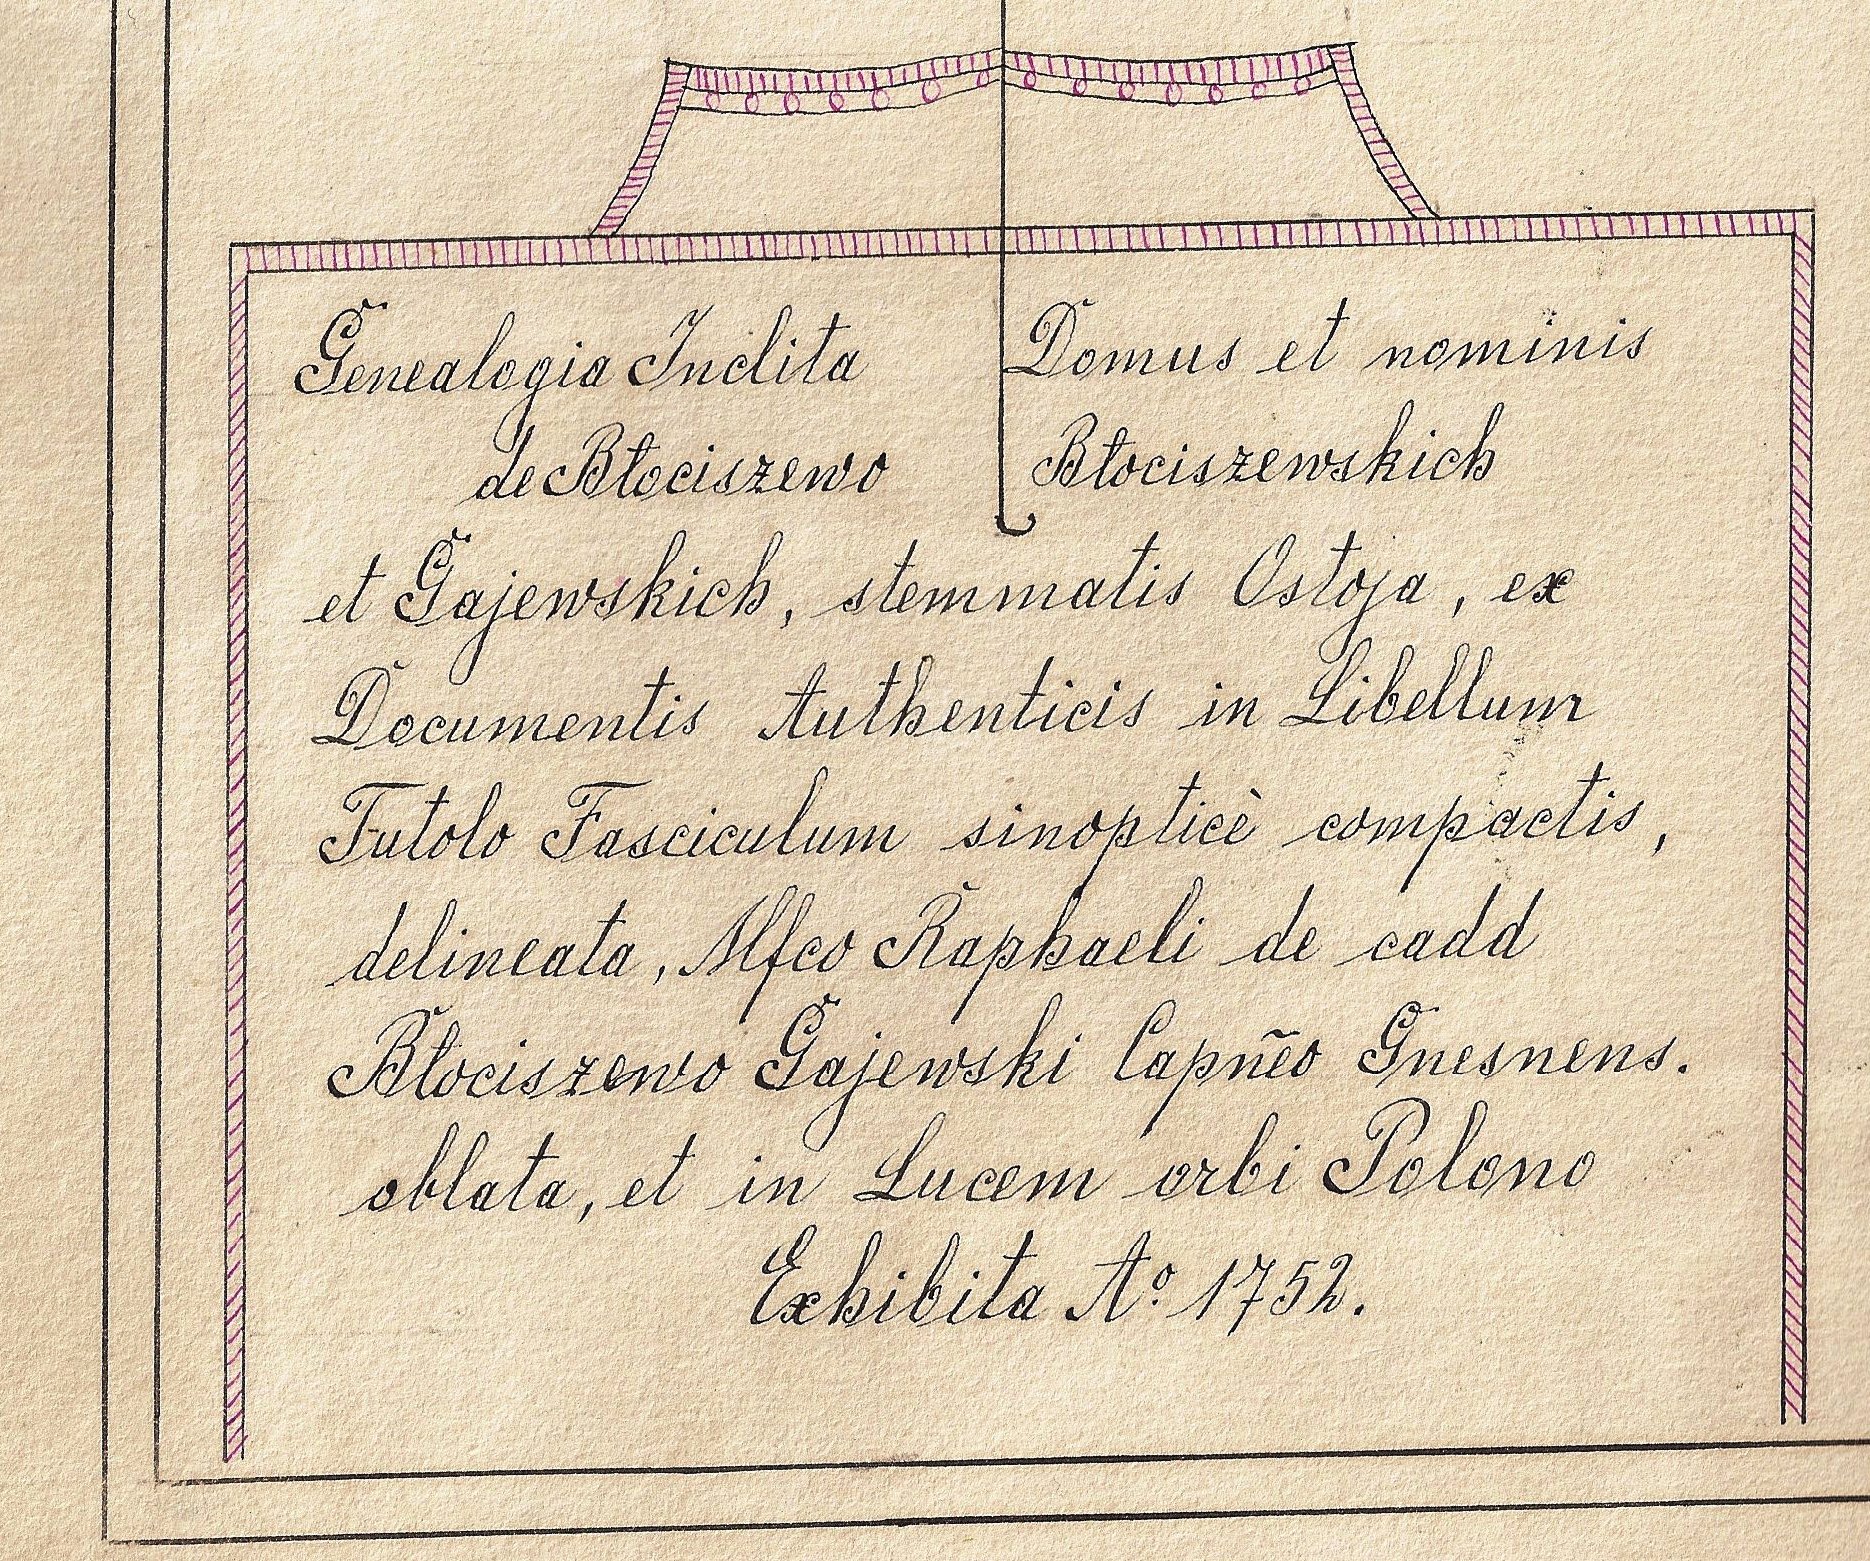 Genealogia Inclita Domus et nominis
de Błociszewo Błociszewskich
et Gajewskich, stemmatis Ostoja, ex
Documentis Authenticis in Libellum
Tutolo Fasciculum sinopticè compactis,
delineata, Mfco Raphaeli de eadd
Błociszewo Gajewski Capñeo Gnesnens.
oblata, et in Lucem orbi Polono
Exhibita Aº 1752.